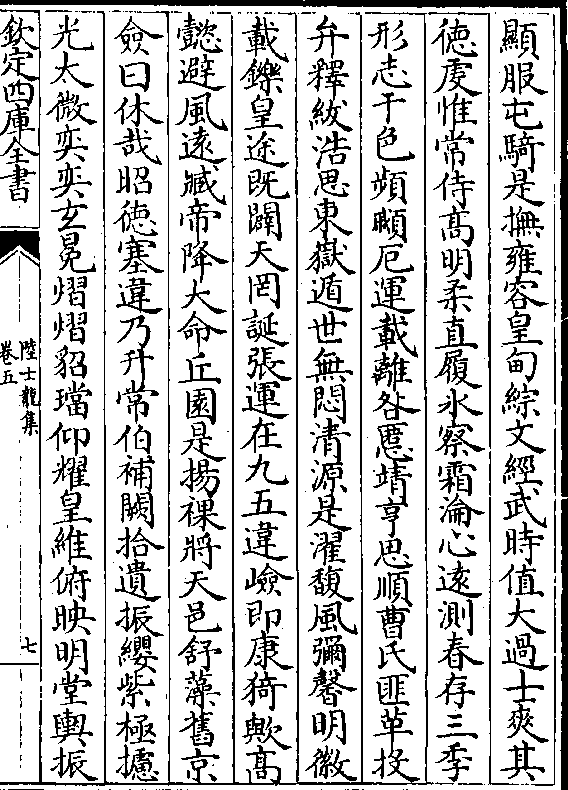 顯服屯騎是撫雍容皇甸綜文經武時值大過士爽其
徳虔惟常侍髙明柔直履氷察霜淪心逺測春存三季
形志干色頻顣厄運載離咎慝靖亨思順曹氏匪革投
弁釋紱浩思東嶽遁世無悶清源是濯馥風彌馨明徽
載鑠皇途既闢天罔誕張運在九五違嶮即康猗歟髙
懿避風逺臧帝降大命丘園是揚祼將天邑舒藻舊京
僉曰休哉昭徳塞違乃升常伯補闕拾遺振纓紫極攄
光太微奕奕玄冕熠熠貂璫仰耀皇維俯映明堂輿振
欽定四庫全書
陸士龍集
卷五
七